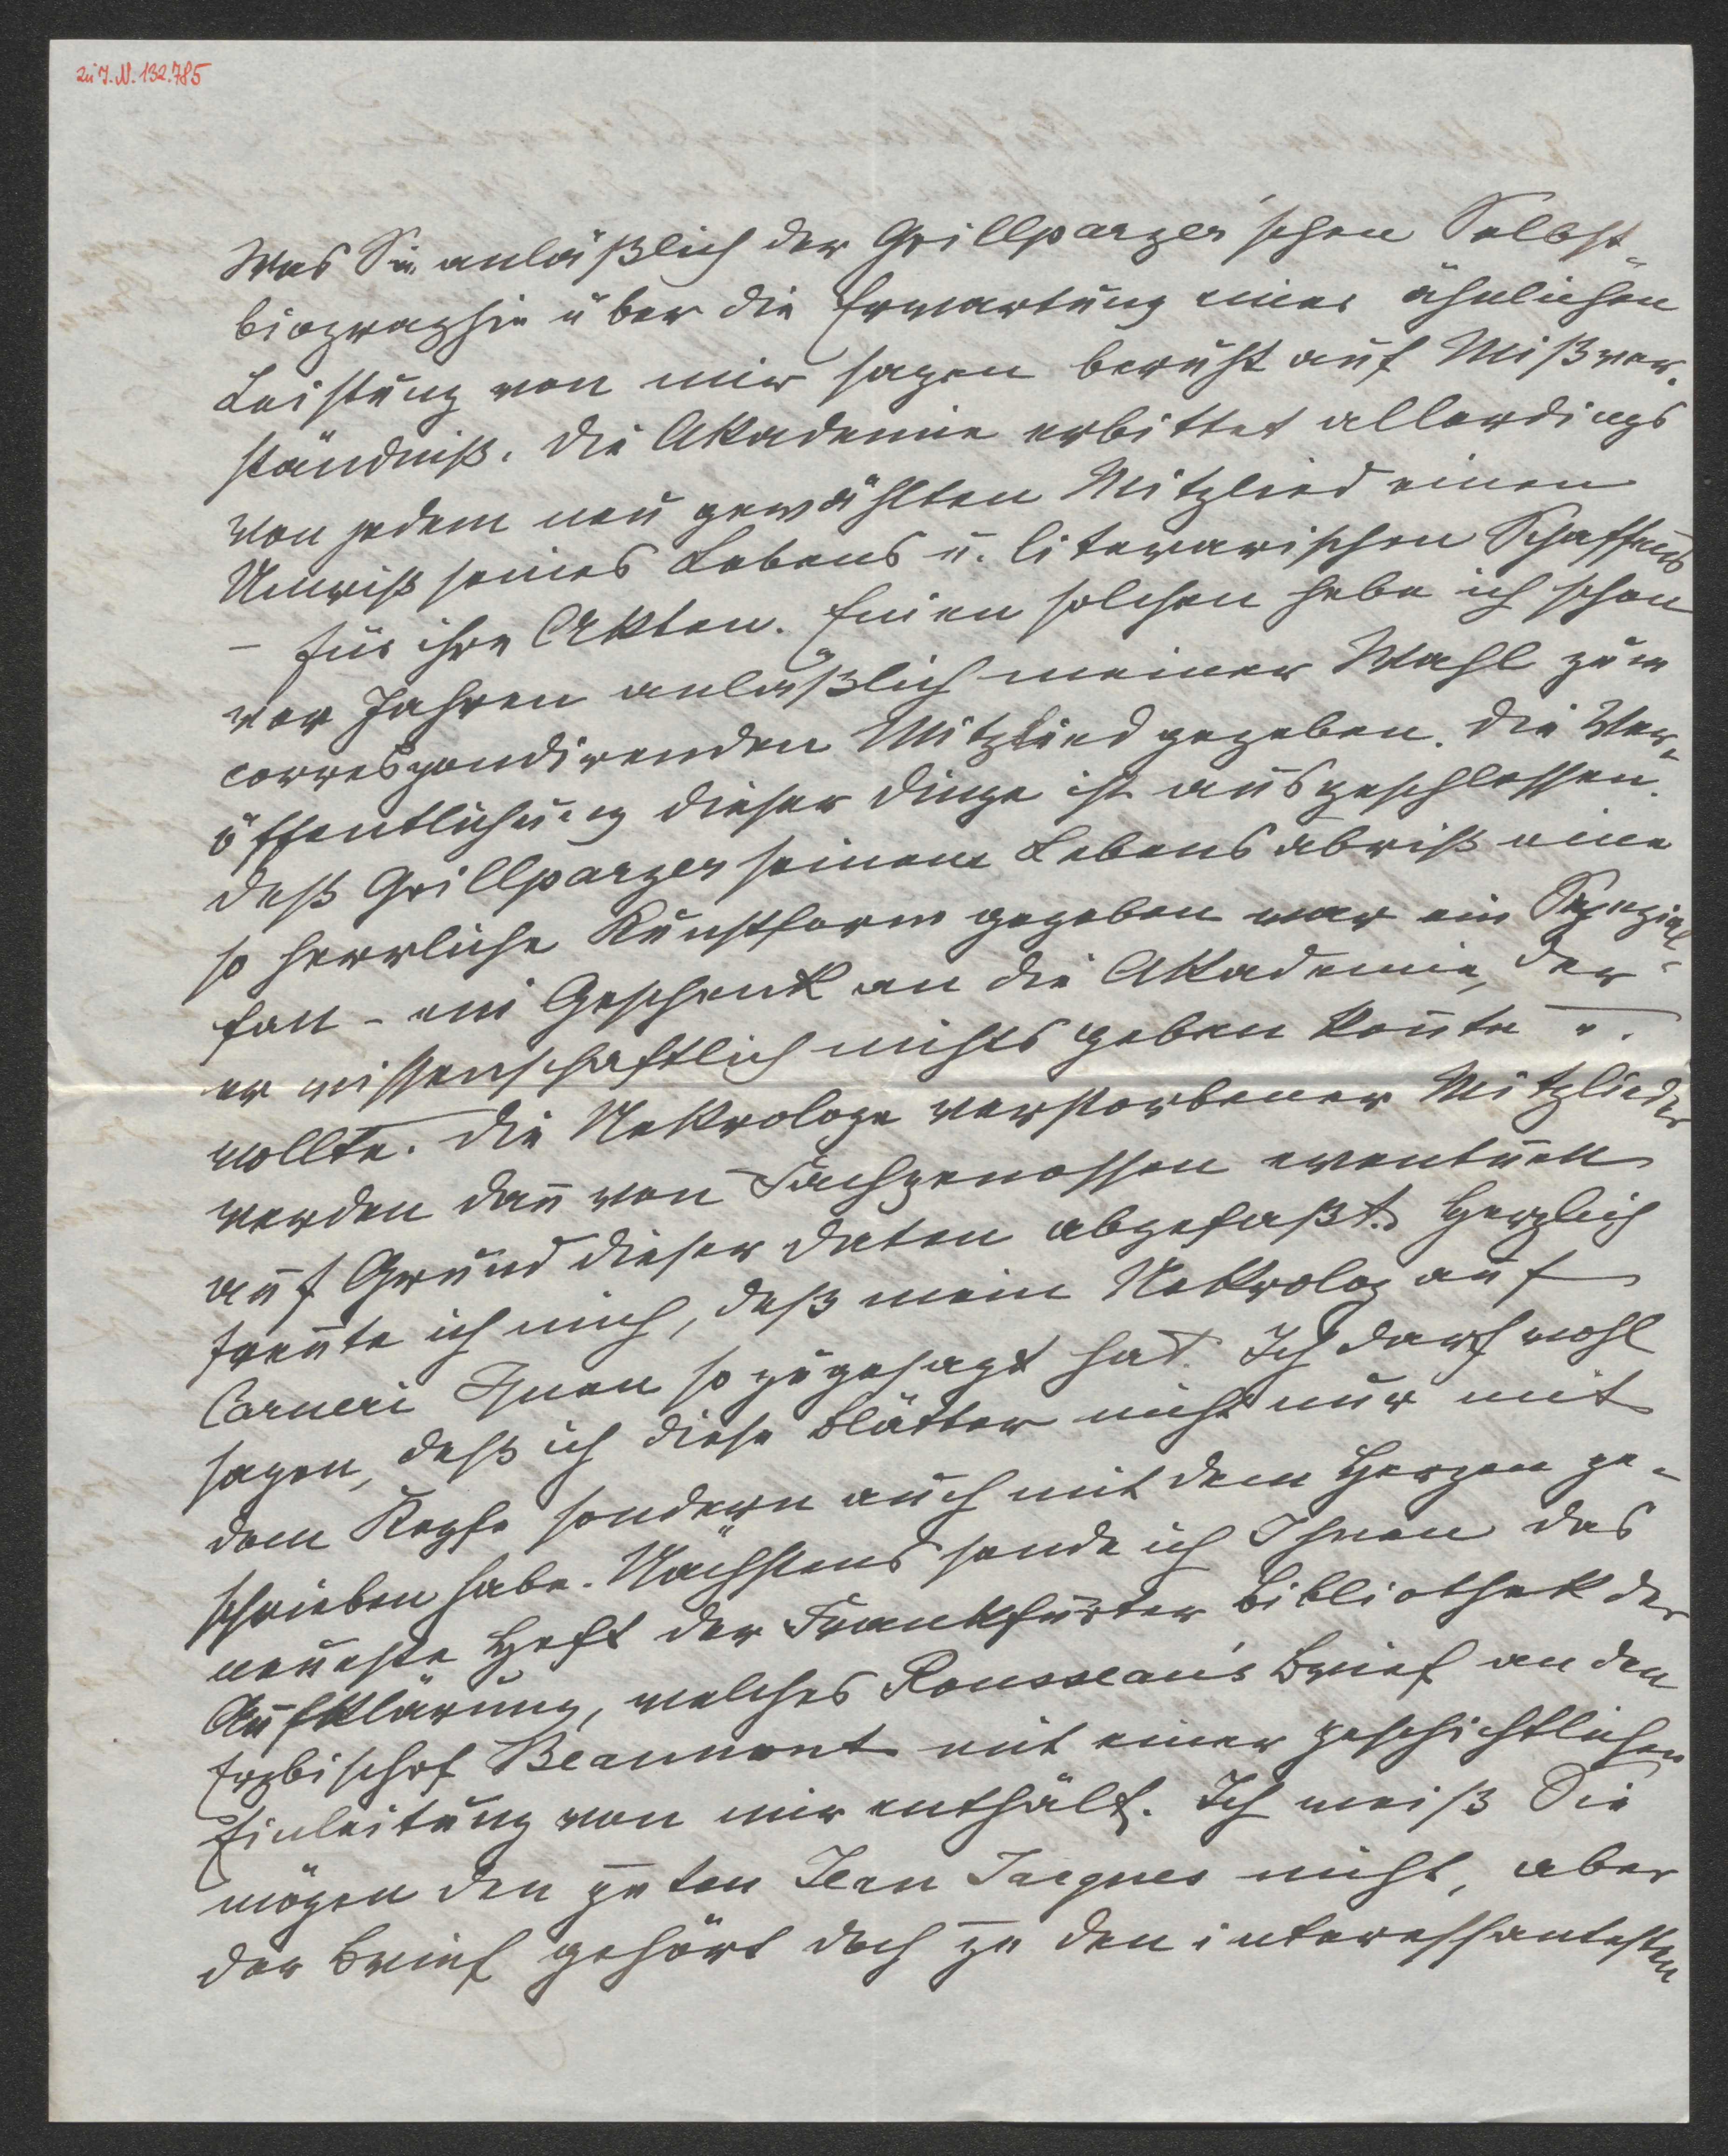 zu I. N. 132.785
Was Sie anläßlich der Grillparzer'schen Selbst-
biographie über die Erwartung einer ähnlichen
Leistung von mir sagen beruht auf Mißver-
ständniß. Die Akademie erbittet allerdings
von jedem neu gewählten Mitglied einen
Umriß seines Lebens u. literarischen Schaffens
– für ihre Akten. Einen solchen habe ich schon
vor Jahren anläßlich meiner Wahl zum
correspondirenden Mitglied gegeben. Die Ver-
öffentlichung dieser Dinge ist ausgeschlossen.
Daß Grillparzer seinem Lebensabriß eine
so herrliche Kunstform gegeben war ein Spezial-
fall – ein Geschenk an die Akademie, der
er wissenschaftlich nichts geben konnte u.
wollte. Die Nekrologe verstorbener Mitglieder
werden dan̄ von Fachgenossen eventuell
auf Grund dieser Daten abgefaßt. Herzlich
freute ich mich, daß mein Nekrolog auf
Carneri Ihnen so zugesagt hat. Ich darf wohl
sagen, daß ich diese Blätter nicht nur mit
dem Kopfe sondern auch mit dem Herzen ge-
schrieben habe. Nächstens sende ich Ihnen das
neueste Heft der Frankfurter Bibliothek der
Aufklärung, welches Rousseau's Brief an den
Erzbischof Beaumont mit einer geschichtlichen
Einleitung von mir enthält. Ich weiß Sie
mögen den guten Jean Jacques nicht, aber
der Brief gehört doch zu den interessantesten